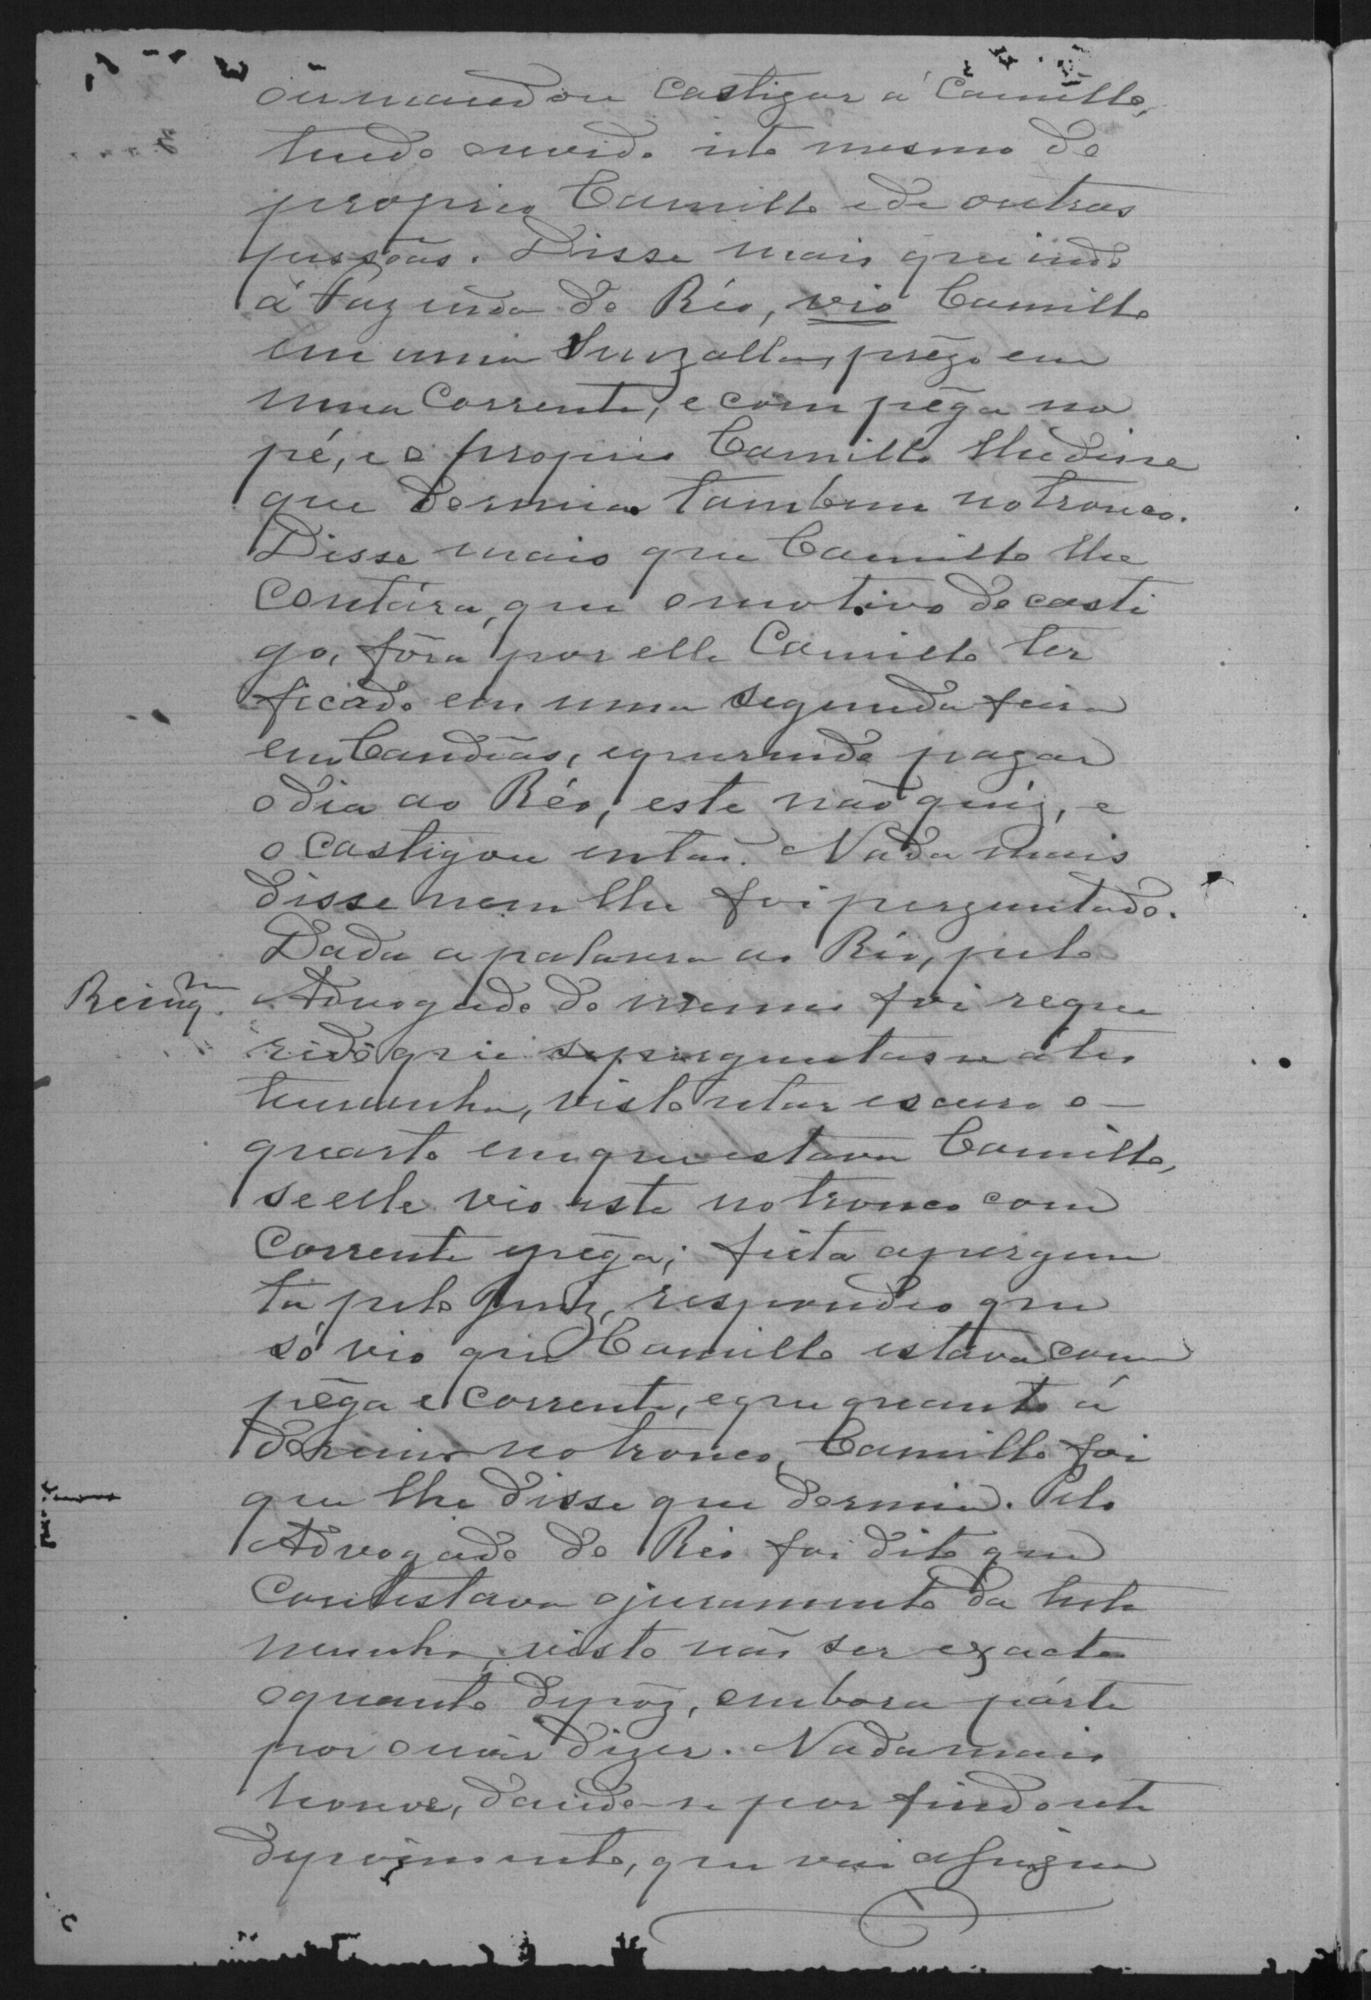 ou mandou castigar á Camillo,
tendo ouvido isto mesmo do
proprio Camillo e de outras
pessôas. Disse mais que indo
á Fazenda do Réo, vio Camillo
em uma Senzalla, prezo em
uma corrente, e com pêga no
pé, e o proprio Camillo lhe disse
que dormia tambem no tronco.
Disse mais que Camillo lhe
contára, que o motivo do casti
go, fôra por elle Camillo ter
ficado em uma segunda feira
em Candêas, e querendo pagar
o dia ao Réo, este não quiz, e
o castigou então. Nada mais
disse nem lhe foi perguntado.
Dada a palavra ao Réo, pelo
Reinq.m Advogado do mesmo foi reque
rido que se perguntasse á tes
temunha, visto estar escuro o
quarto em que estava Camillo,
se elle vio este no tronco com
corrente e pêga; feita a pergun
ta, pelo Juiz, respondeo que
só vio que Camillo estava com
pêga e corrente, e que quanto á
dormir no tronco, Camillo foi
que lhe disse que dormia. Pelo
Advogado do Réo foi dito que
contestava o juramento da teste
munha, visto não ser exacto
o quanto depôz, embora párte
por ouvir dizer. Nada mais
houve, dando-se por findo este
depoimento, que vai assignu